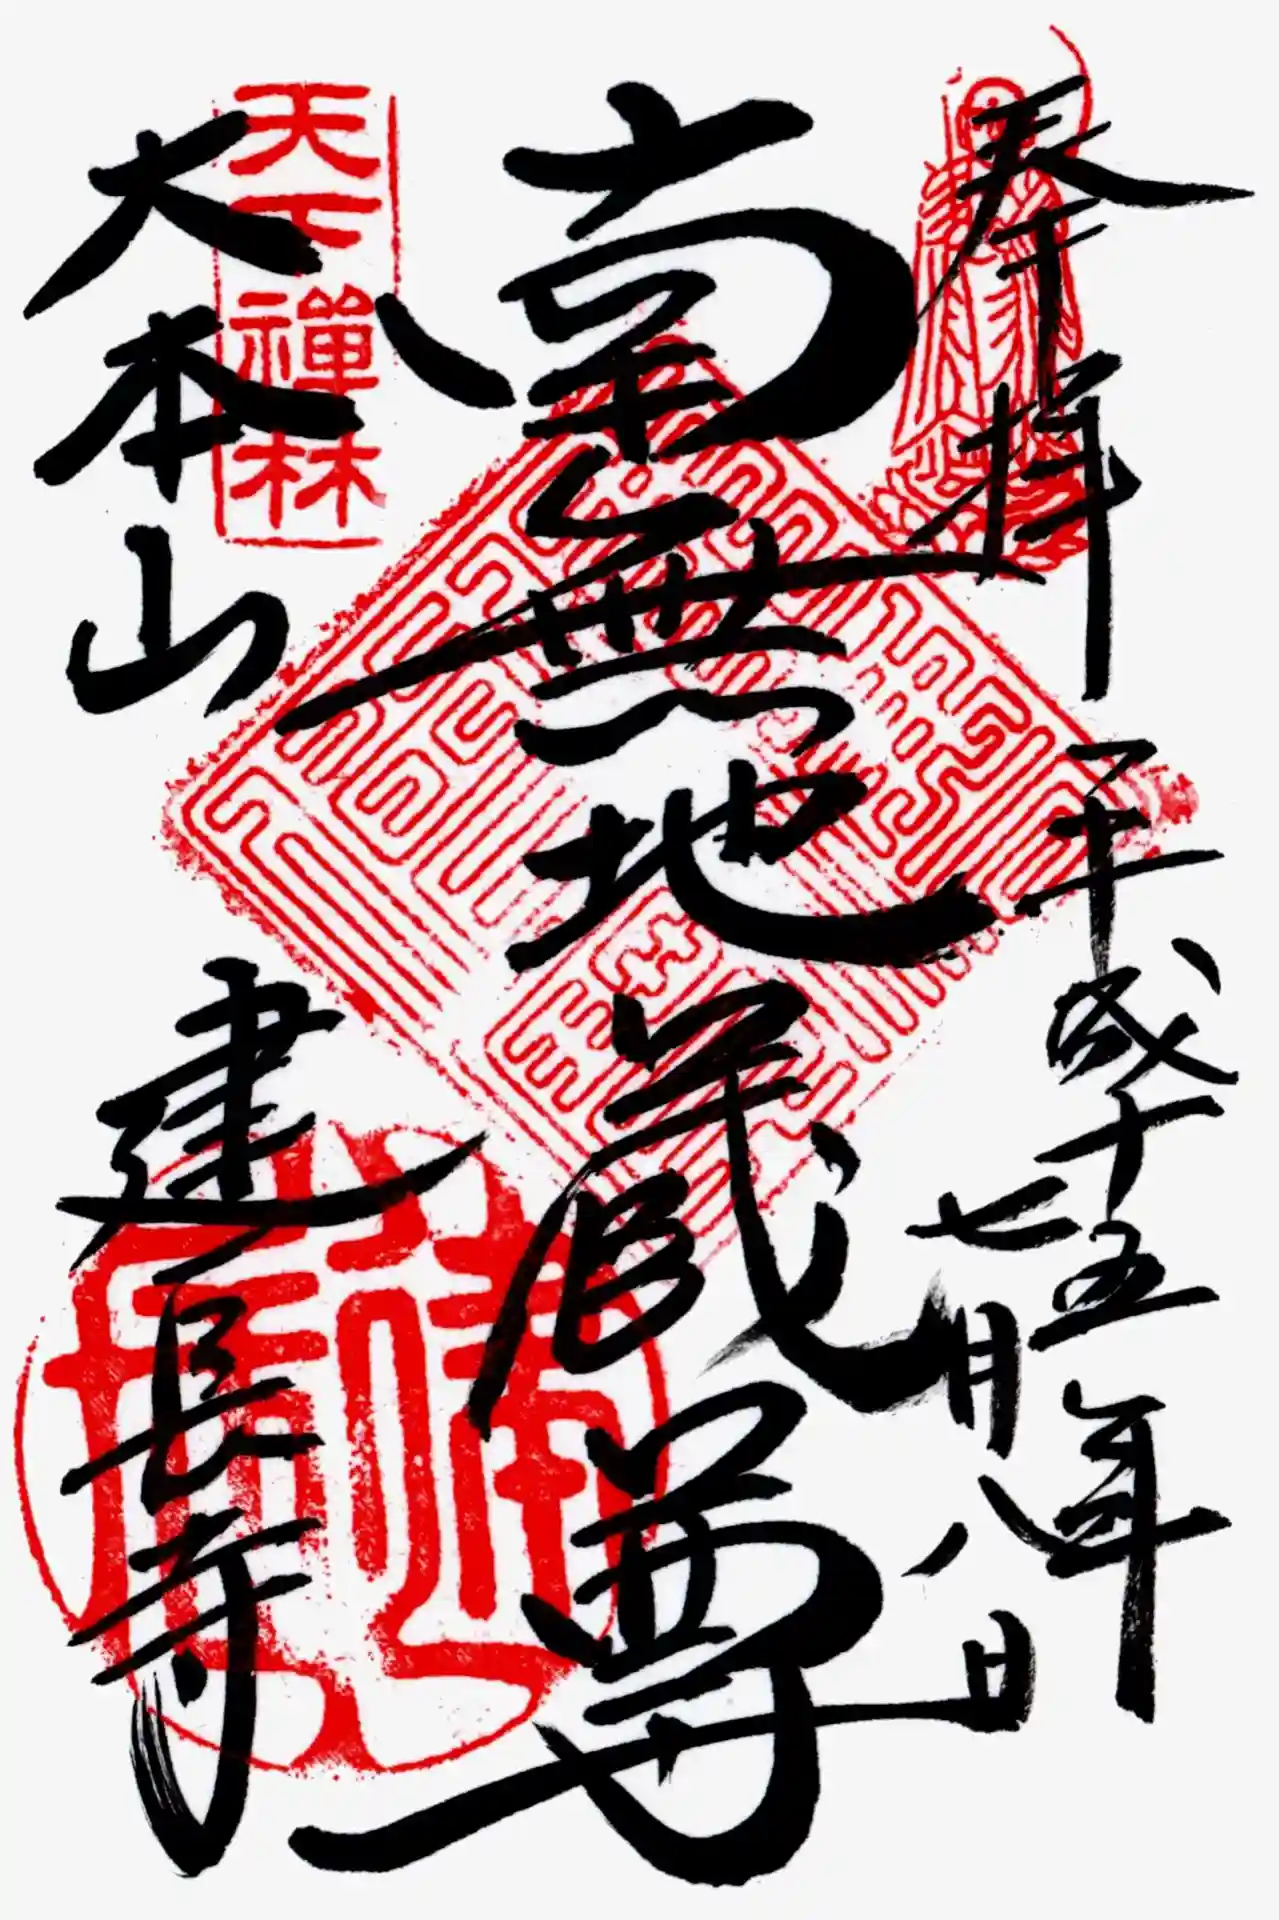 奉拝
平成十五年
七月八日
南無地蔵尊
天下禅林
大本山
建長寺